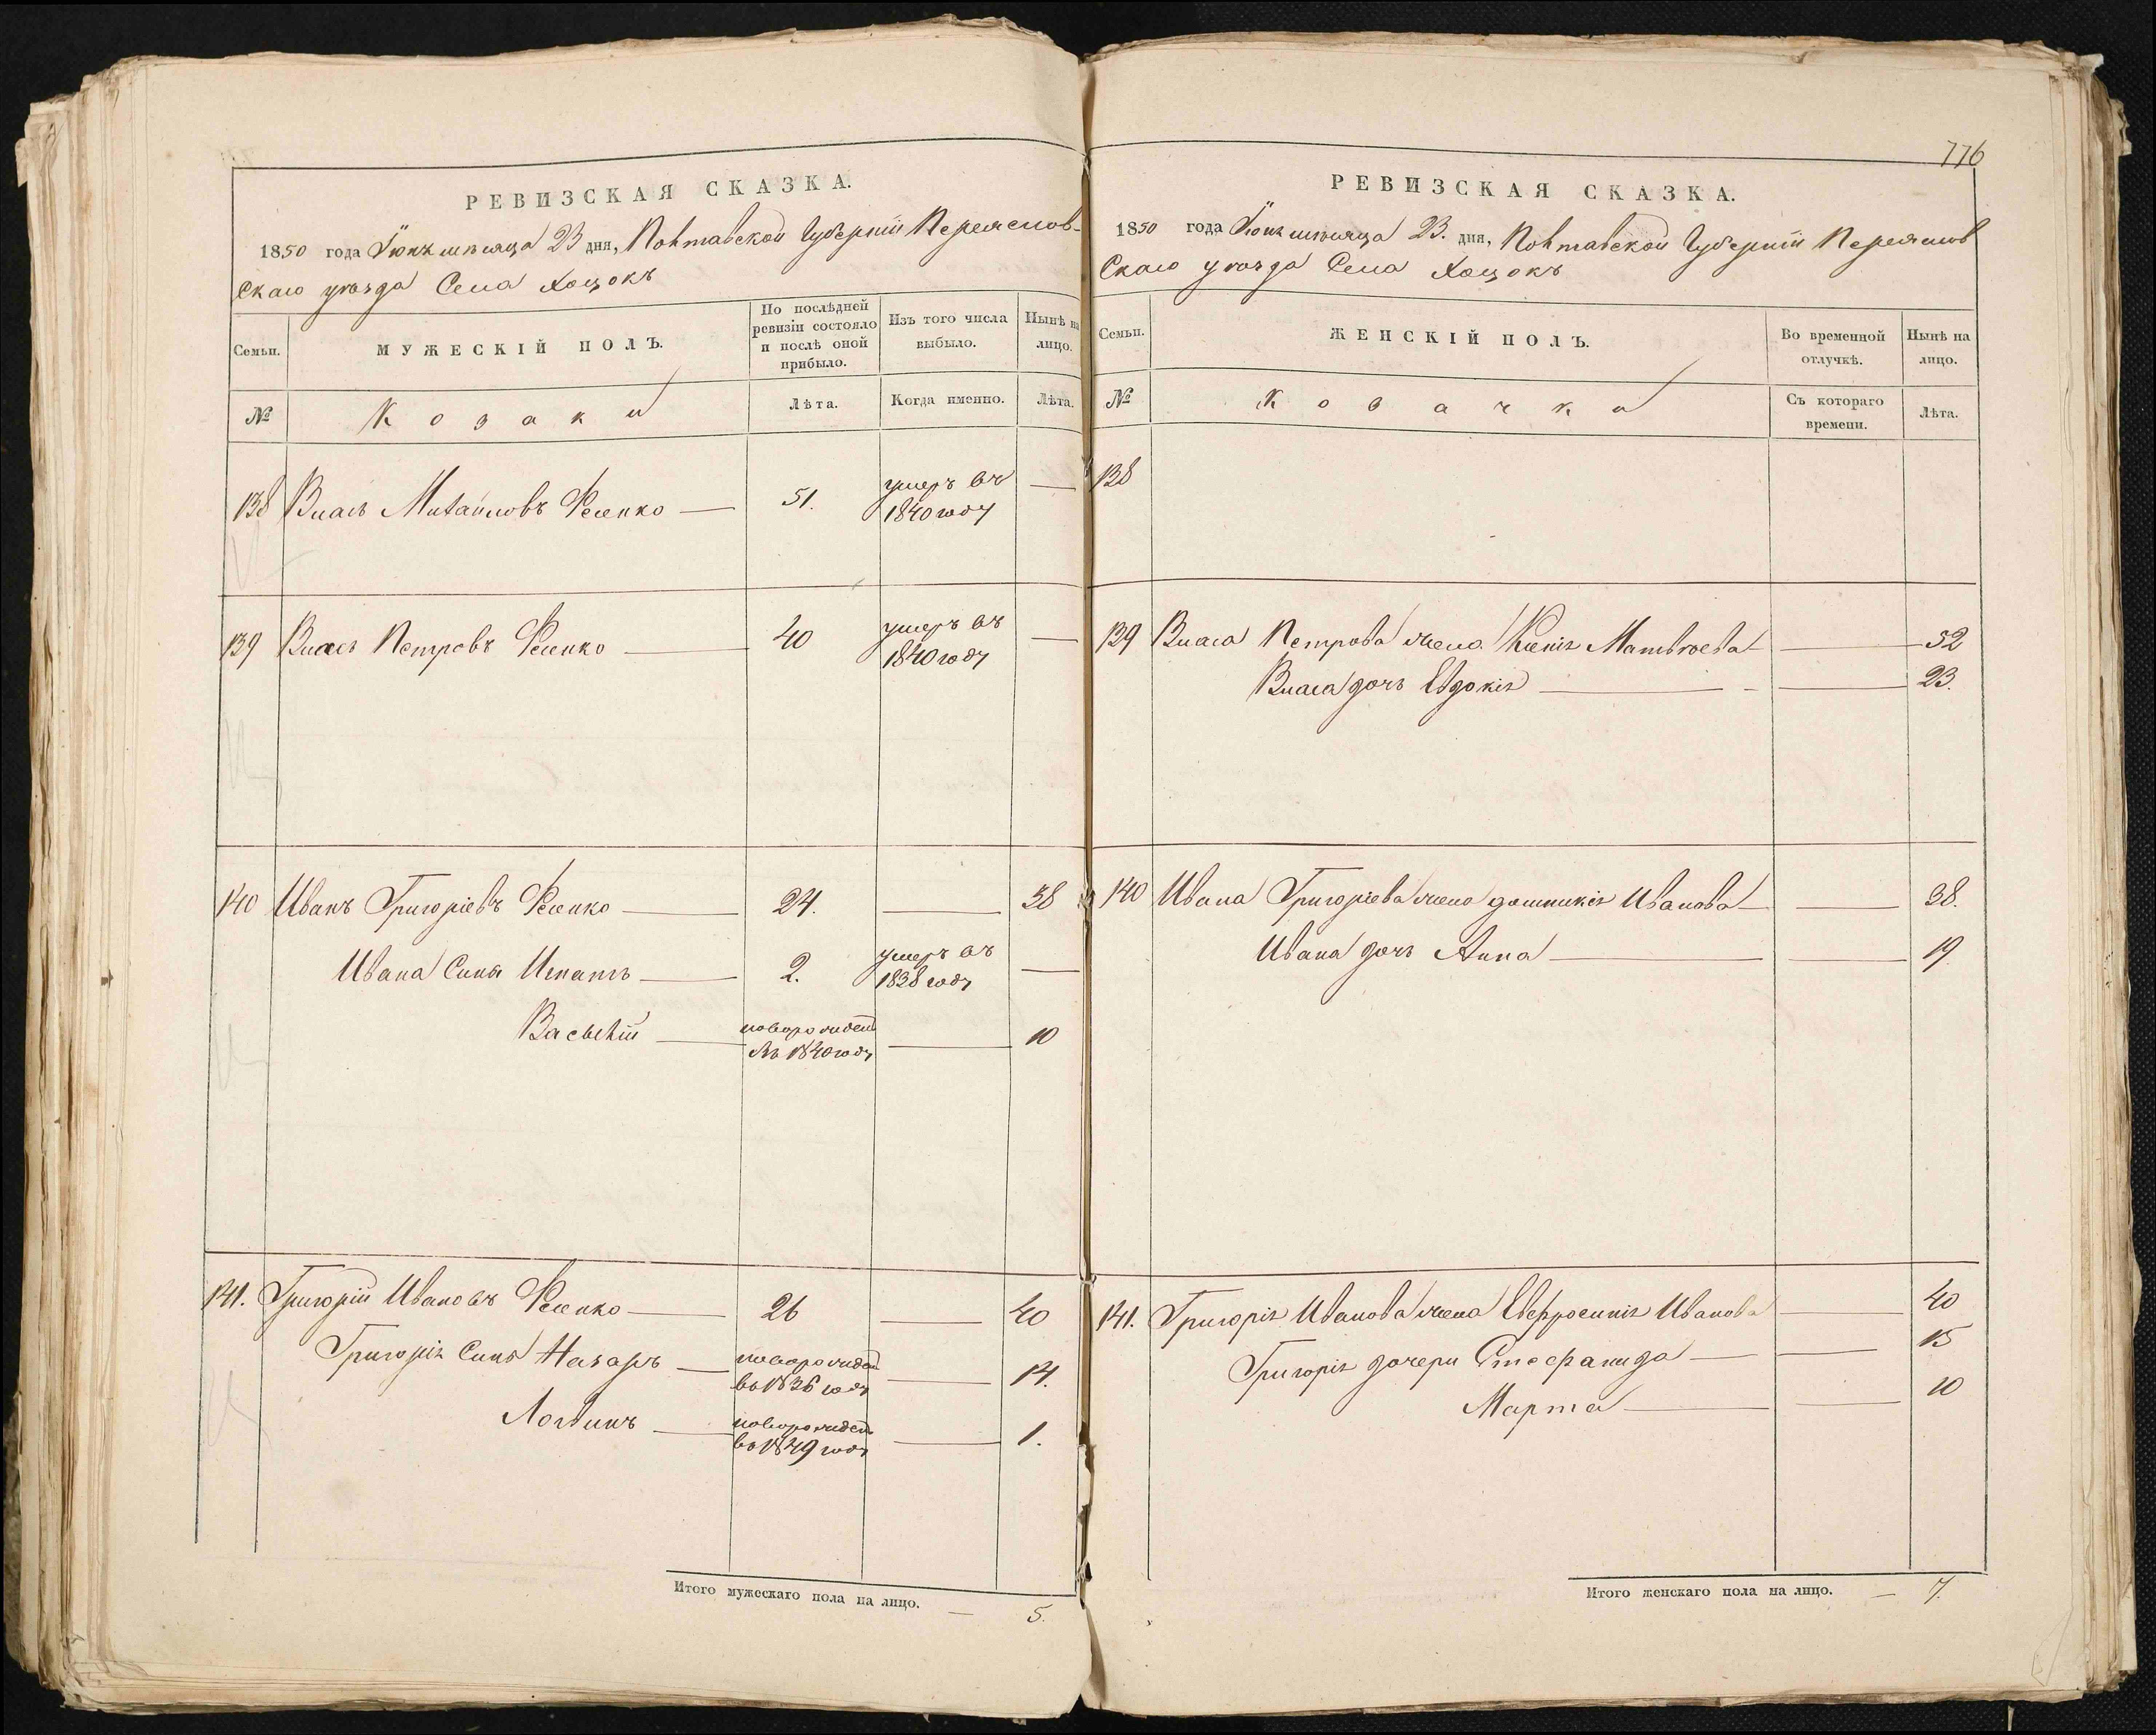 РЕВИЗСКАЯ СКАЗКА.
1850 года Июня мѣсяца 23 дня, Полтавской Губерніи Переяслов-
скаго уѣзда Села Хоцокъ
Семьи.
МУЖЕСКІЙ ПОЛЪ.
По послѣдней ревизіи состояло и послѣ оной прибыло.
Изъ того числа выбыло.
Нынѣ на лицо.
№
Козаки
Лѣта.
Когда именно.
Лѣта.
138 Власъ Михайловъ Фесенко — 51. умеръ въ —
1840 году
139 Власъ Петровъ Фесенко — 40 умеръ въ —
1840 году
140 Иванъ Григоріевъ Фесенко — 24. — 38
Ивана Сынъ Игнатъ — 2. умеръ въ —
1838 году
Васылій — новорожден — 10
въ 1840 году
141. Григорій Ивановъ Фесенко — 26 — 40
Григорія Сынъ Назаръ — новорожден — 14.
въ 1836 году
Логвинъ — новорожден — 1.
въ 1849 году
Итого мужескаго пола на лицо. — 5.
776
РЕВИЗСКАЯ СКАЗКА.
1850 года Июня мѣсяца 23. дня, Полтавской Губерніи Переяслов
скаго уѣзда Села Хоцокъ
Семьи.
ЖЕНСКІЙ ПОЛЪ.
Во временной отлучкѣ.
Нынѣ на лицо.
№
Козачки
Съ котораго времени.
Лѣта.
138
139 Власа Петрова жена Ксенія Матвѣева — 52
Власа дочь Евдокія — 23.
140 Ивана Григоріева жена домникія Иванова — 38.
Ивана дочь Анна — 19
141. Григорія Иванова жена Евфросинія Иванова — 40
Григорія дочери Стефанида — 15
Марта — 10
Итого женскаго пола на лицо. — 7.